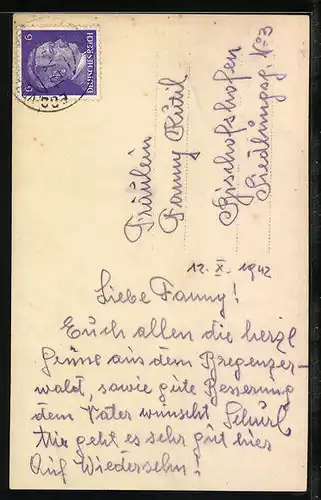 6 6
DEUTSCHES REICH
Fräulein
Fanny Rutil
Bischofshofen
Siedlungsg. No 3
12. X. 1942
Liebe Fanny!
Euch allen die herzl
Grüße aus dem Bregenzer-
wald, sowie gute Besserung
dem Vater wünscht Schurl
Mir geht es sehr gut hier
Auf Wiedersehn!